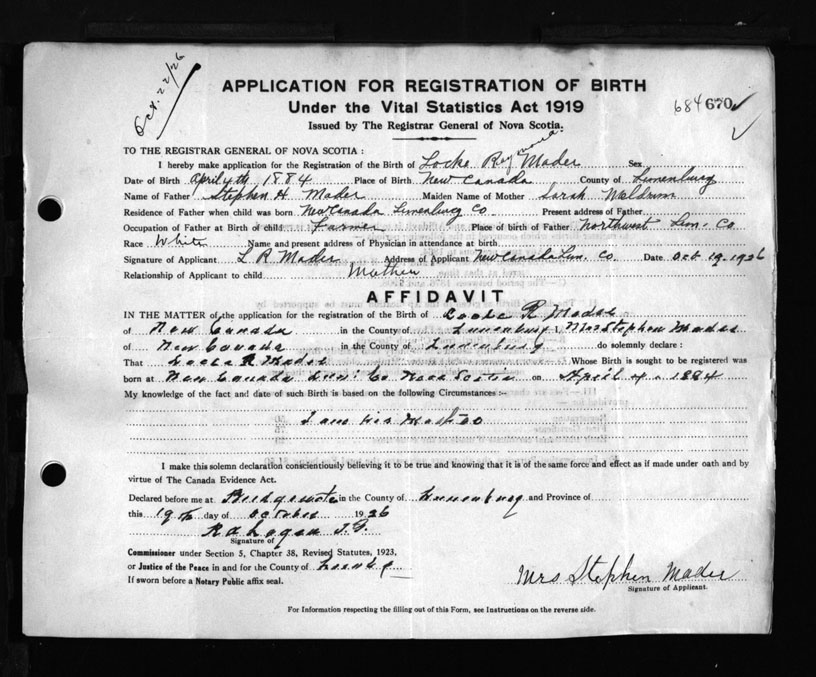 Oct. 22/26
APPLICATION FOR REGISTRATION OF BIRTH
684 670
Under the Vital Statistics Act 1919
Issued by The Registrar General of Nova Scotia.
TO THE REGISTRAR GENERAL OF NOVA SCOTIA :
I hereby make application for the Registration of the Birth of Locke Raymond Mader Sex
Date of Birth April 4th 1884 Place of Birth New Canada County of Lunenburg
Name of Father Stephen H Mader Maiden Name of Mother Sarah
Residence of Father when child was born New Canada Lunenburg Co Present address of Father
Occupation of Father at Birth of child Farmer Place of birth of Father Northwest Lun. Co
Race White Name and present address of Physician in attendance at birth
Signature of Applicant L R Mader Address of Applicant New Canada Lun. Co. Date Oct 19. 1926
Relationship of Applicant to child Mother
AFFIDAVIT
IN THE MATTER of the application for the registration of Birth of Locke R Mader
of New Canada in the County of Lunenburg I, Mrs Stephen Mader
of New Canada in the County of Lunenburg do solemnly declare :
That Locke R Mader Whose Birth is sought to be registered was
born at New Canada Lun. Co Nova Scotia on April 4. 1884
My knowledge of the fact and date of such Birth is based on the following Circumstances :-
I am his
I make this solemn declaration conscientiously believing it to be true and knowing that it is of the same force and effect as if made under oath and by
virtue of The Canada Evidence Act.
Declared before me at Bridgewater in the County of Lunenburg and Province of
this 19th day of October 1926
R A Logan J.P.
Signature of
Commissioner under Section 5, Chapter 38, Revised Statutes, 1923,
or Justice of the Peace in and for the County of
If sworn before a Notary Public affix seal.
Mrs Stephen Mader
Signature of Applicant.
For Information respecting the filling out of this Form, see Instructions on the reverse side.